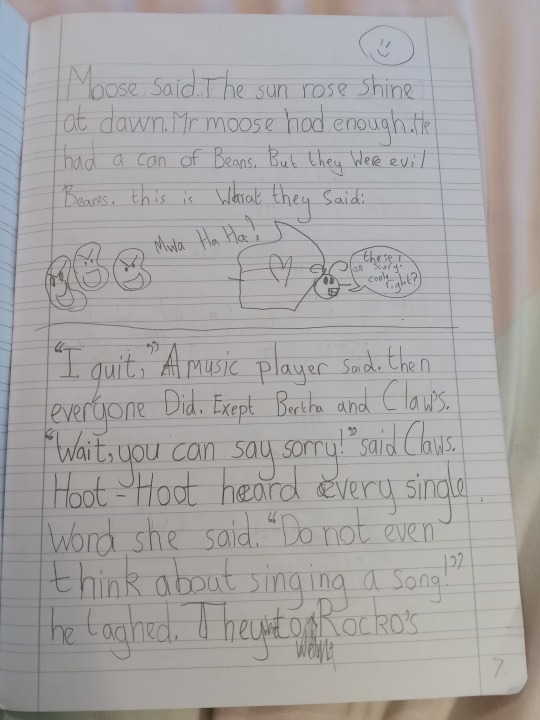 Moose said. The sun rose shine
at dawn. Mr moose had enough. He
had a can of Beans. But they Were evil
Beans. this is What they said:
Mwa Ha Ha!
these
are scary.
right?
"I quit," A music player said. then
everyone Did. Exept Bertha and Claws.
"Wait, you can say sorry!" said Claws.
Hoot-Hoot heard every single
word she said. "Do not even
think about singing a song!"
he laghed. They went to Rocko's
7